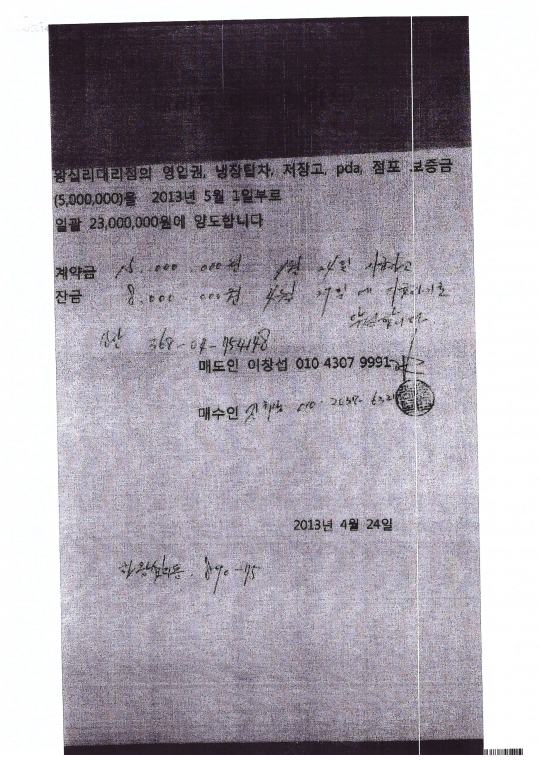 왕십리대리점의 영업권, 냉장탑차, 저장고, pda, 점포 보증금
(5,000,000)을 2013년 5월 1일부로
일괄 23,000,000원에 양도합니다
계약금 15.000.000원 4월 24일 지불하고
잔금 8.000.000원 4월 에
368-04-954148
매도인 이창섭 010 4307 9991
매수인 010-
2013년 4월 24일
하왕십리동. 890-75